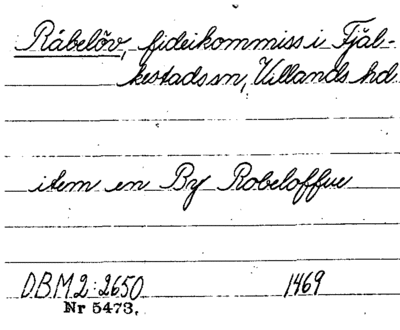 Råbelöv, fideikommiss i Fjäl-
kestads sn, Villands hd.
item en By Robeloffue
D.B.M 2:2650 1469
Nr 5473.